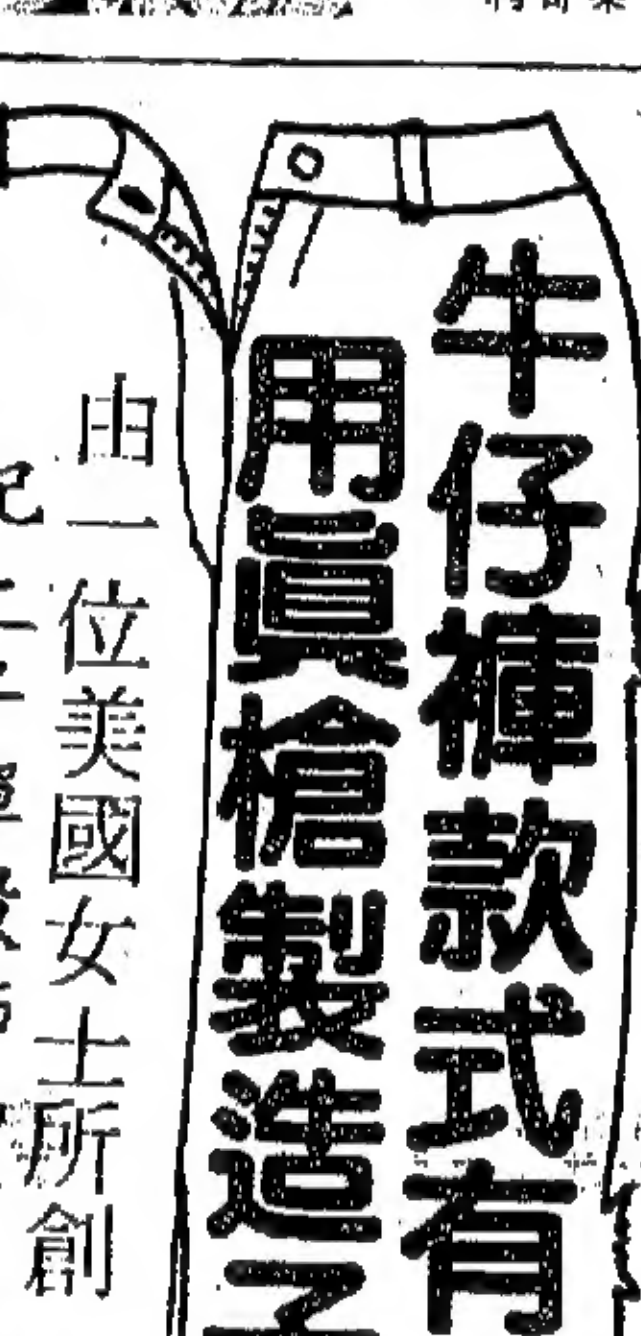 牛仔褲款式有
用眞槍製造
由一位美國女士所創